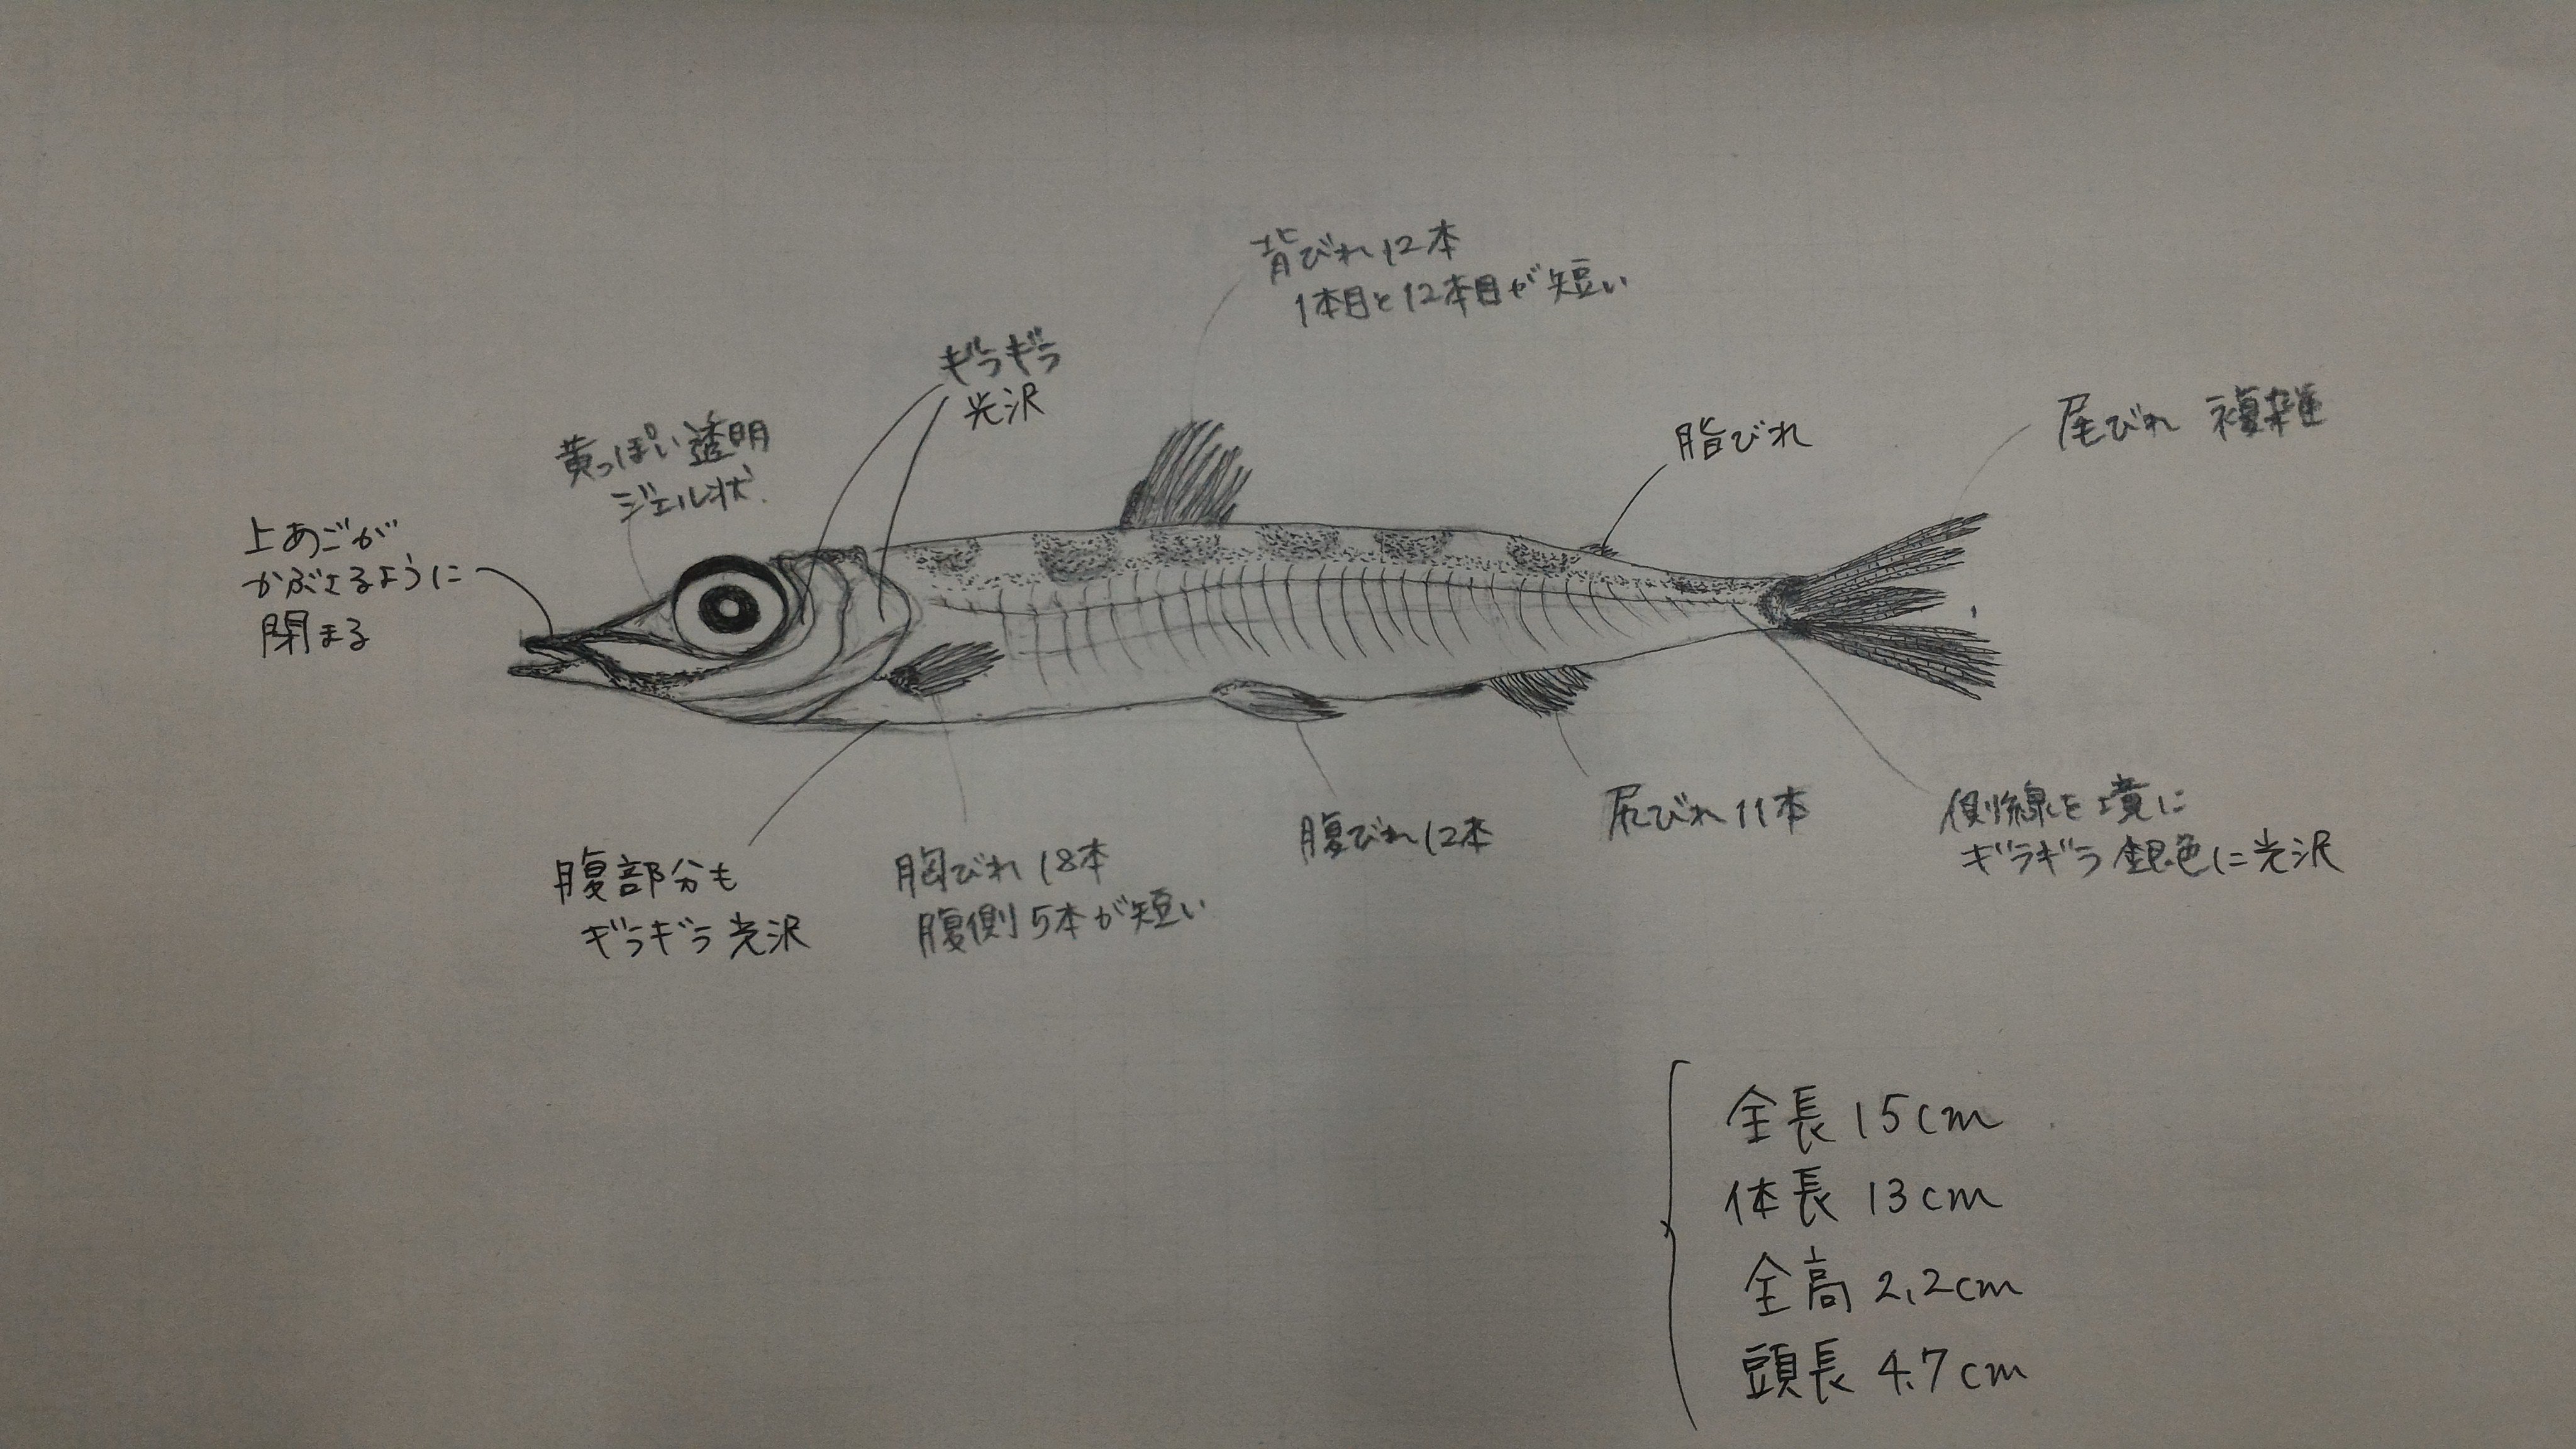 背びれ 12本
1本目と12本目が短い
ギラギラ
光沢
黄っぽい透明
ジェル状
上あごが
かぶさるように
閉まる
脂びれ
尾びれ 複雑
腹部分も
ギラギラ光沢
胸びれ 18本
腹側5本が短い
腹びれ12本
尻びれ 11本
側線を境に
ギラギラ銀色に光沢
全長 15cm
体長 13cm
全高 2.2cm
頭長 4.7cm